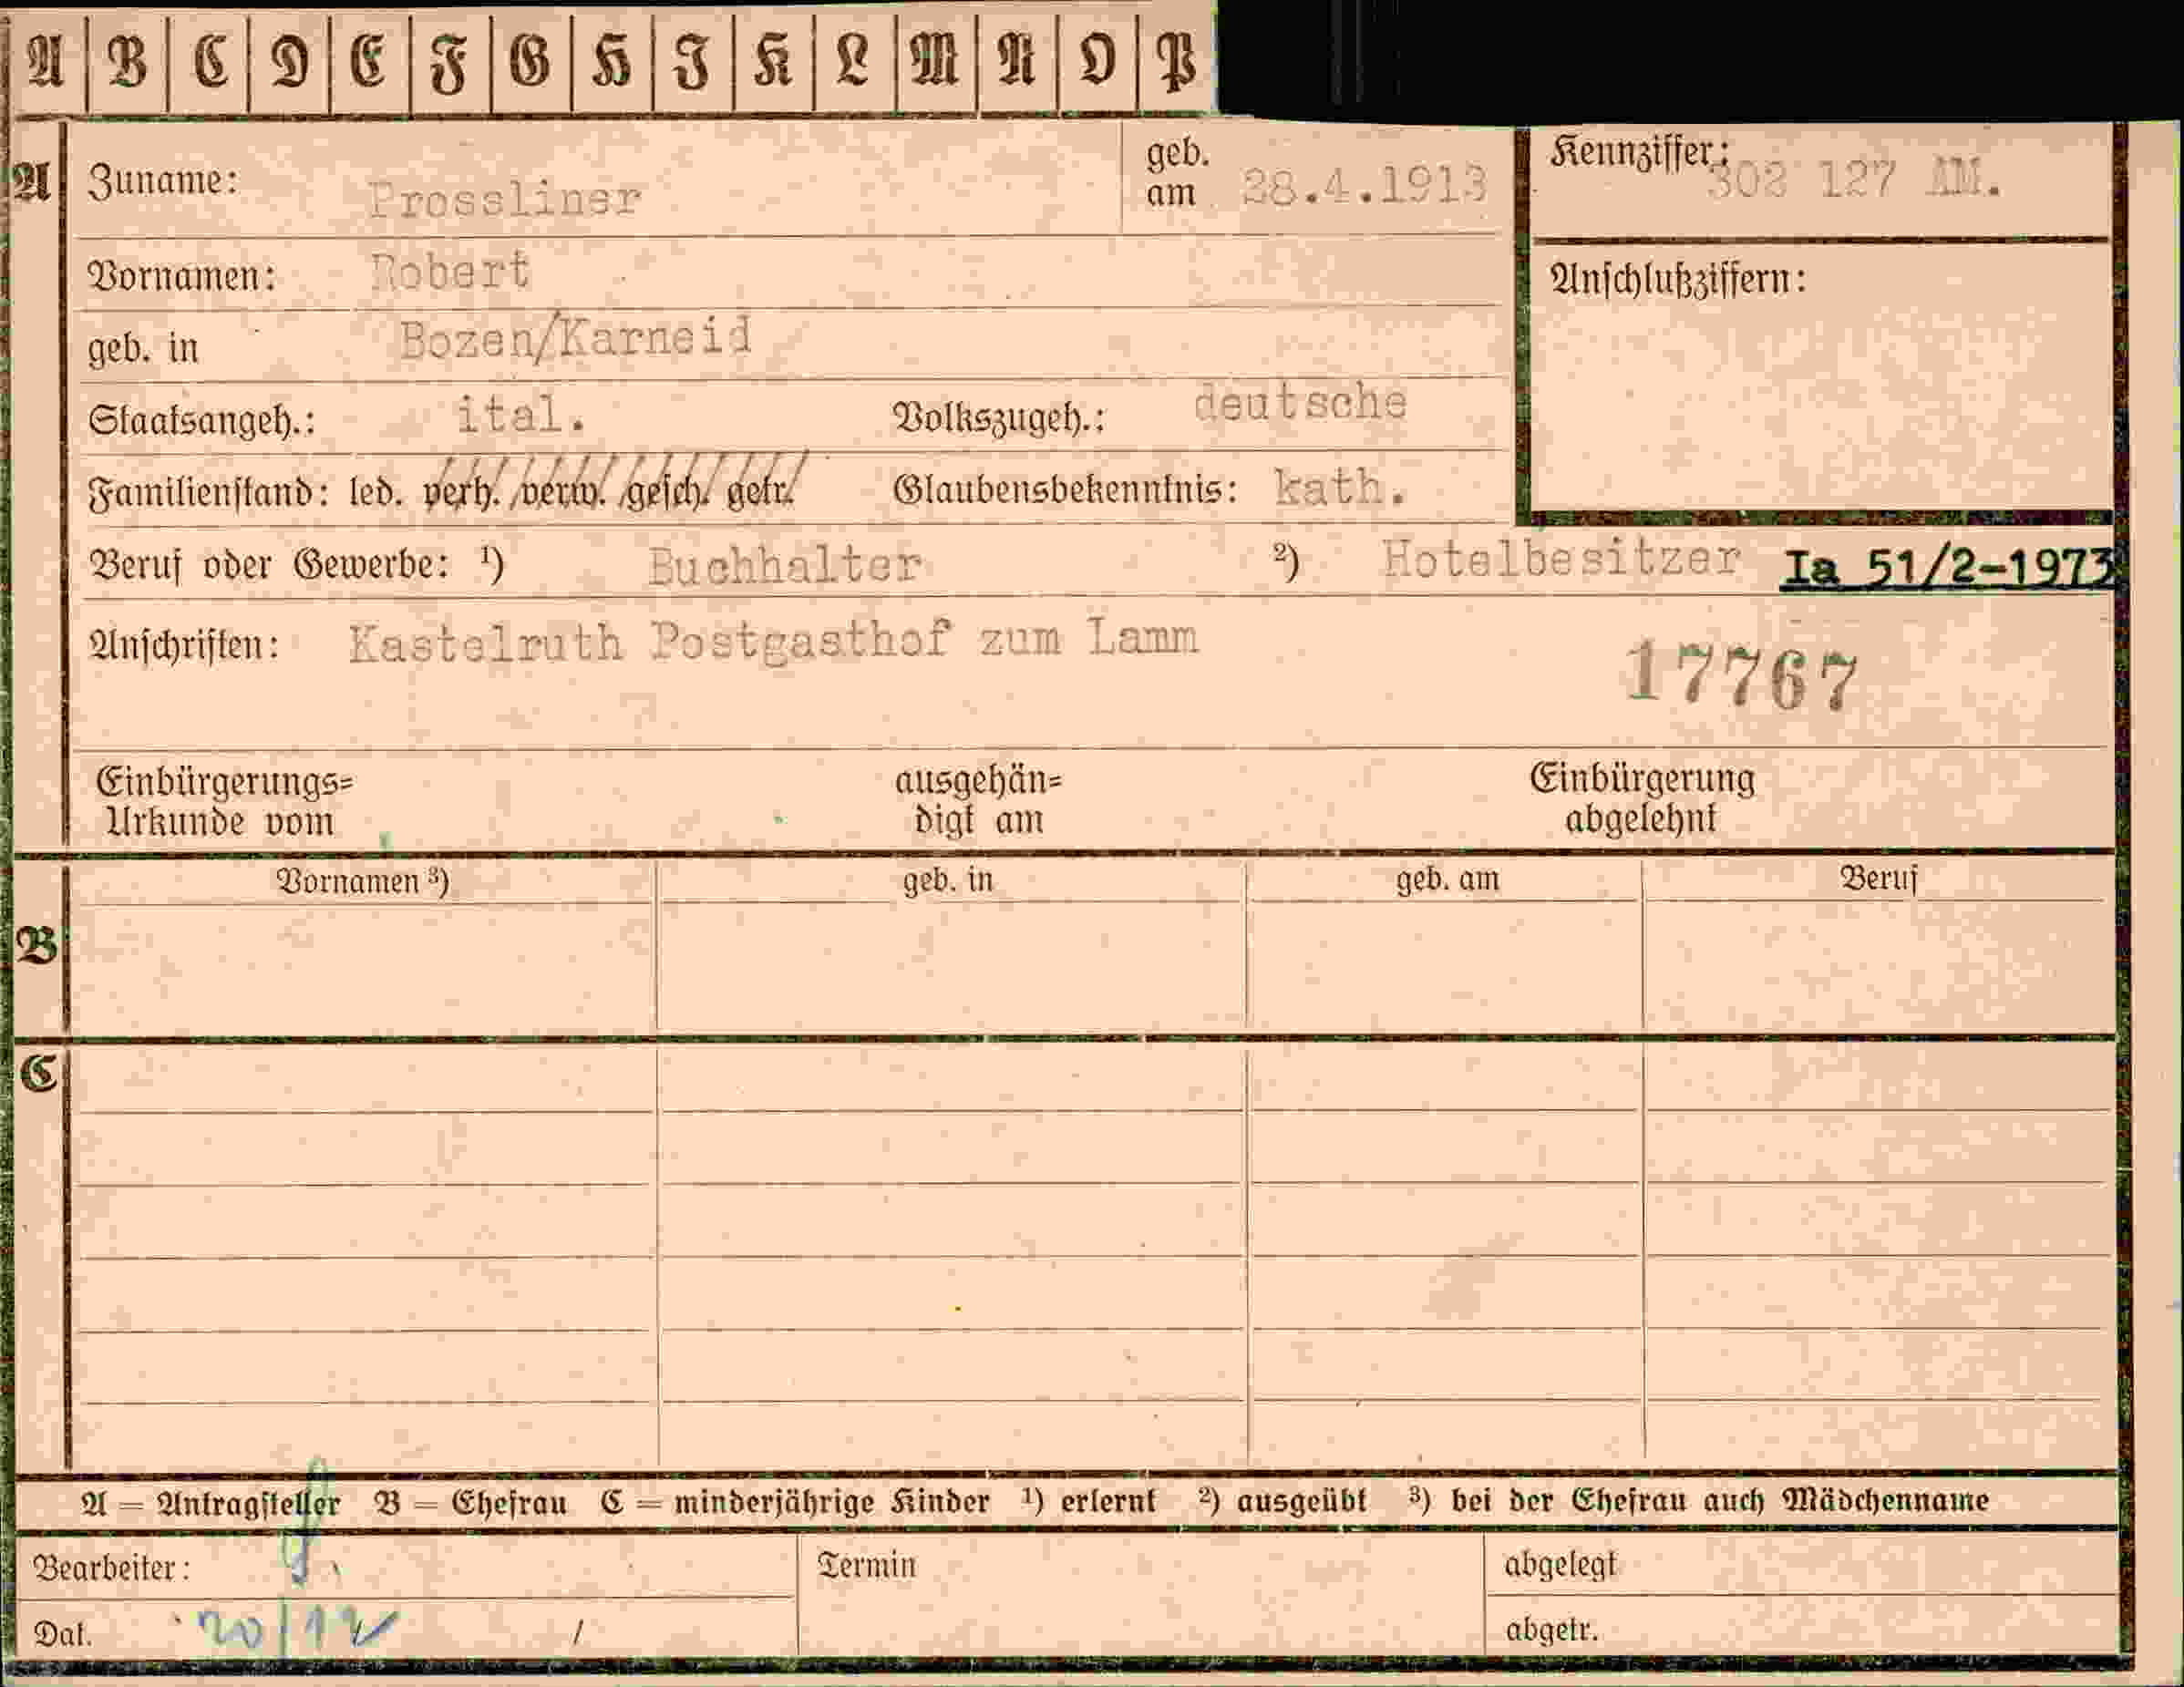 A B C D E F G H I K L M N O P
A Zuname: Prossliner geb. am 28.4.1913 Kennziffer: 302 127 AM.
Vornamen: Robert Anschlußziffern:
geb. in Bozen/Karneid
Staatsangeh.: ital. Volkszugeh.: deutsche
Familienstand: led. verh. verw. gesch. getr. Glaubensbekenntnis: kath.
Beruf oder Gewerbe: ¹) Buchhalter ²) Hotelbesitzer Ia 51/2-1973
Anschriften: Kastelruth Postgasthof zum Lamm
17767
Einbürgerungs= ausgehän= Einbürgerung
Urkunde vom digt am abgelehnt
Vornamen ³) geb. in geb. am Beruf
B
C
A = Antragsteller B = Ehefrau C = minderjährige Kinder ¹) erlernt ²) ausgeübt ³) bei der Ehefrau auch Mädchenname
Bearbeiter: Termin abgelegt
Dat. 20/12 / abgetr.